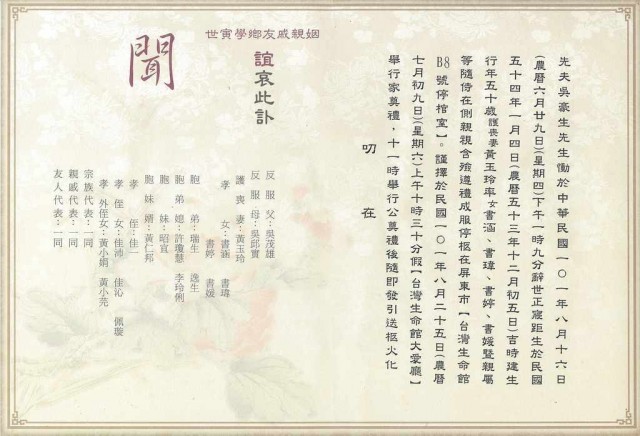 先夫吳豪生先生慟於中華民國一○一年八月十六日
(農曆六月廿九日)(星期四)下午一時九分辭世正寢距生於民國
五十四年一月四日(農曆五十三年十二月初五日)吉時建生
行年五十歲護喪妻黃玉玲率女書涵、書瑋、書婷、書媛暨親屬
等隨侍在側親視含殮遵禮成服停柩在屏東市【台灣生命館
B8號停棺室】。謹擇於民國一○一年八月二十五日(農曆
七月初九日)(星期六)上午十時三十分假【台灣生命館大愛廳】
舉行家奠禮，十一時舉行公奠禮後隨即發引送柩火化
叨在
世寅學鄉友戚親姻
誼哀此訃
聞
反服父：吳茂雄
反服母：吳邱實
護喪妻：黃玉玲
孝女：書涵 書瑋
書婷 書媛
胞弟：瑞生 逸生
胞弟媳：許瓊慧 李玲俐
胞妹：昭宜
胞妹婿：黃仁邦
孝侄：佳一
孝侄女：佳沛 佳沁 佩璇
孝外侄女：黃小娟 黃小芫
宗族代表：一同
親戚代表：一同
友人代表：一同